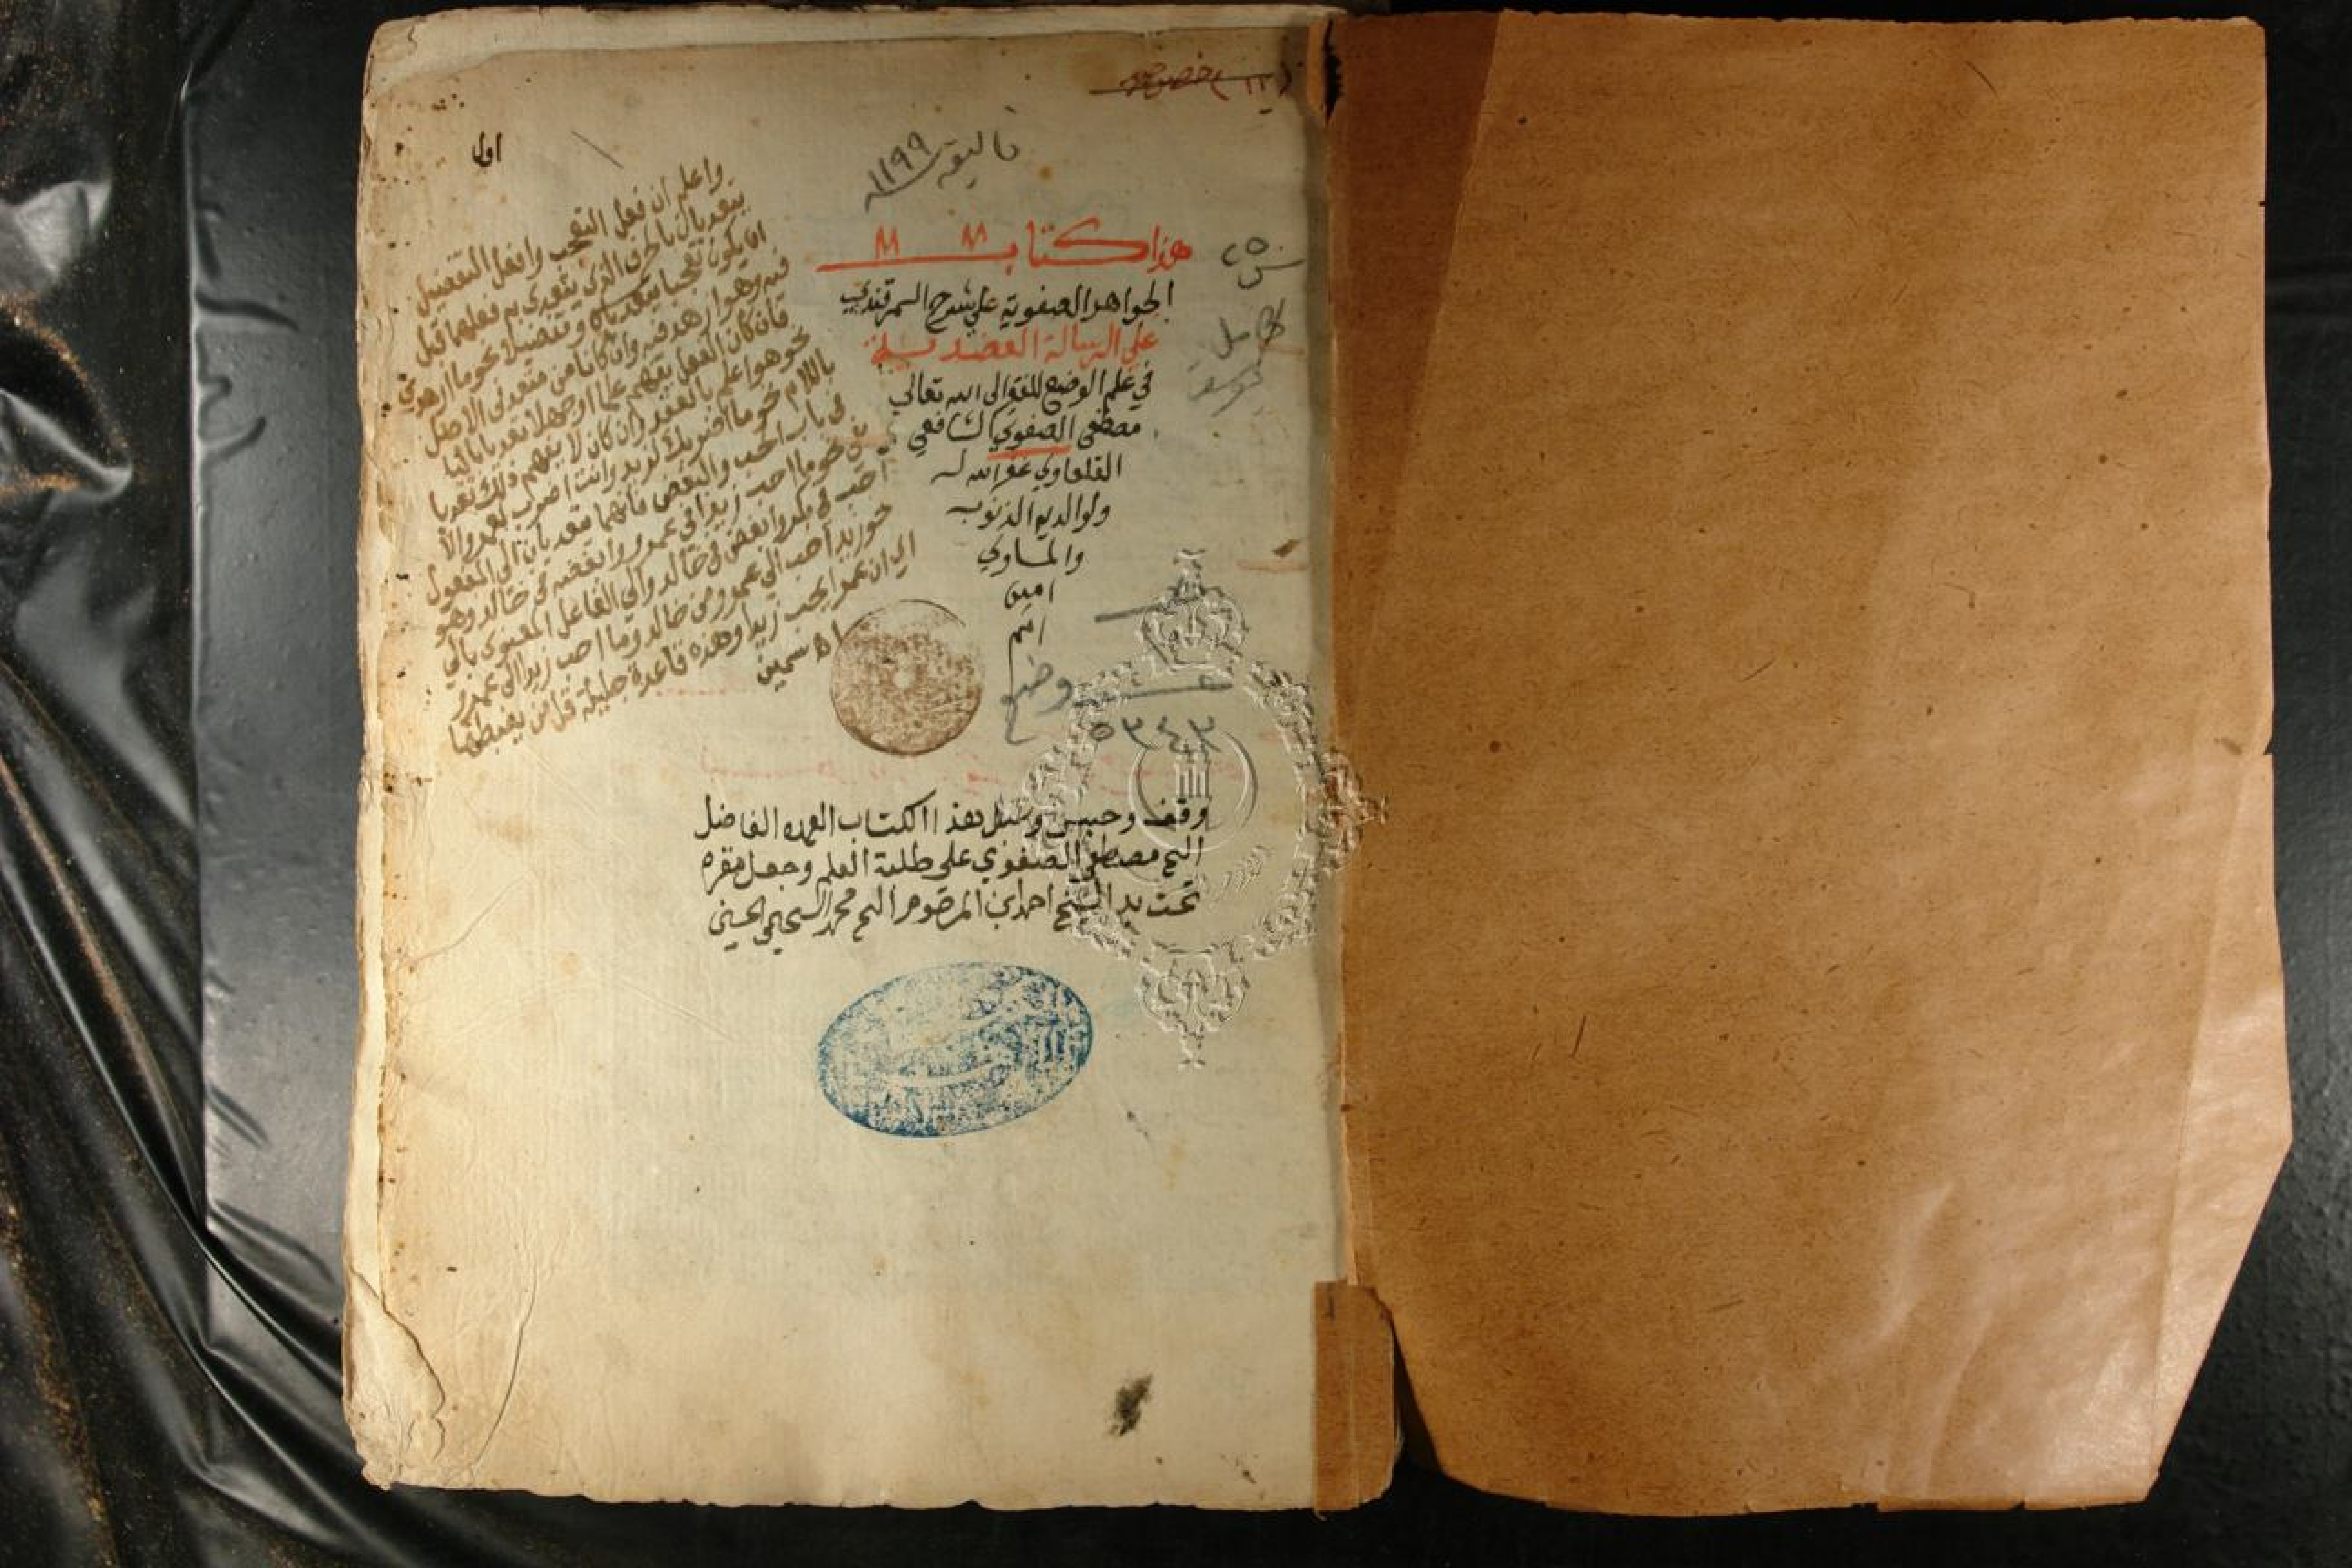 اول
تاليفه ١١٩٩
هذا كتاب
الجواهر الصفويه علي شرح السمرقندي
علي الرسالة العضديه
في علم الوضع للفقير الى الله تعالى
مصطفى الصفوي الشافعي
القلعاوي غفر الله له
ولوالديه الذنوب
والمساوي
امين
وضع
٥٣٤٣
٢٥
كامل
واعلم ان فعل التعجب وافعل التفضيل
يتعديان بالحرف الذي يتعدى به فعلهما قبل
ان يكون تعجبا وتفضيلا نحو ما ازهده
فيه وهو ازهد فيه وان كانا من متعد في الاصل
فان كان الفعل يفهم علما او جهلا تعديا بالبا
نحو هو اعلم بالفقه وان كان لا يفهم ذلك تعديا
باللام نحو ما اضربك لزيد وانت اضرب لعمرو الا
في باب الحب والبغض فانهما متعديان الى المفعول
بفي نحو ما احب زيدا في عمرو وابغضه في خالد وهو
احب في بكر وابغض في خالد والي الفاعل المعنوي بالي
نحو زيد احب الي عمرو من خالد وما احب زيدا الى عمرو
اي ان عمرا يحب زيدا وهذه قاعدة جليلة قل من يضبطها
اه سمين
وقف وحبس وسبل هذا الكتاب العمده الفاضل
الشيخ مصطفى الصفوي على طلبة العلم وجعل مقره
تحت يد الشيخ احمد بن المرحوم الشيخ محمد السحيمي الحسيني